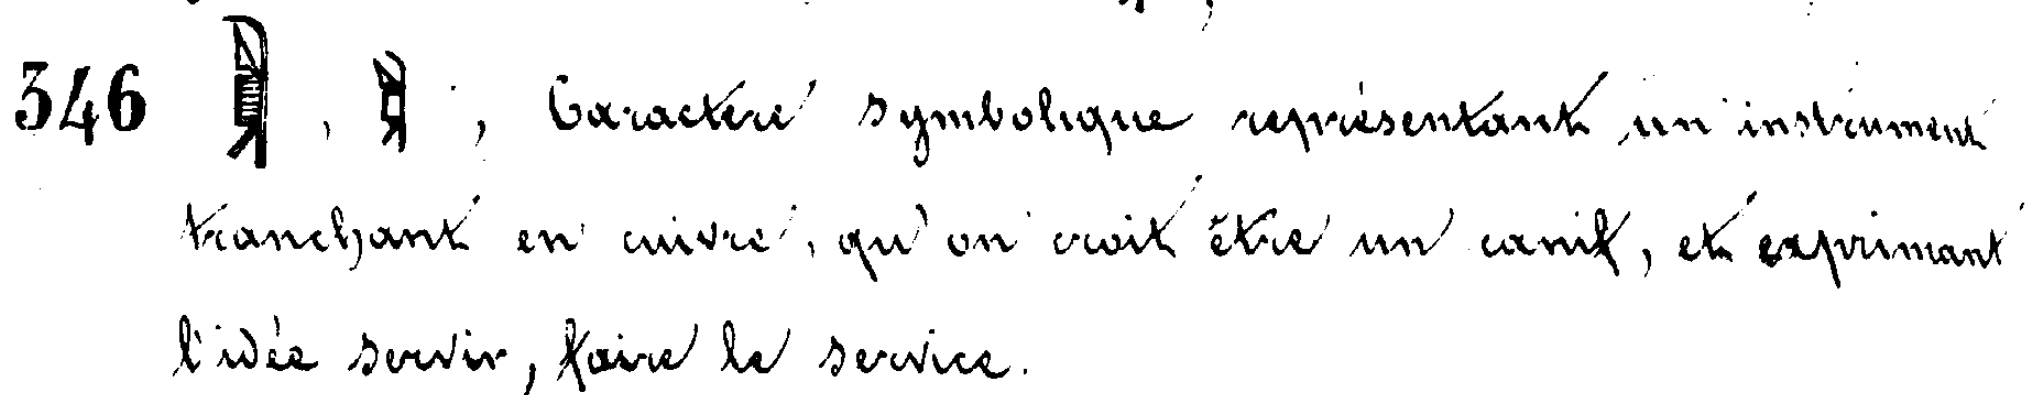 346 , , Caractère symbolique représentant un instrument
tranchant en cuivre, qu'on croit être un canif, et exprimant
l'idée servir, faire le service.